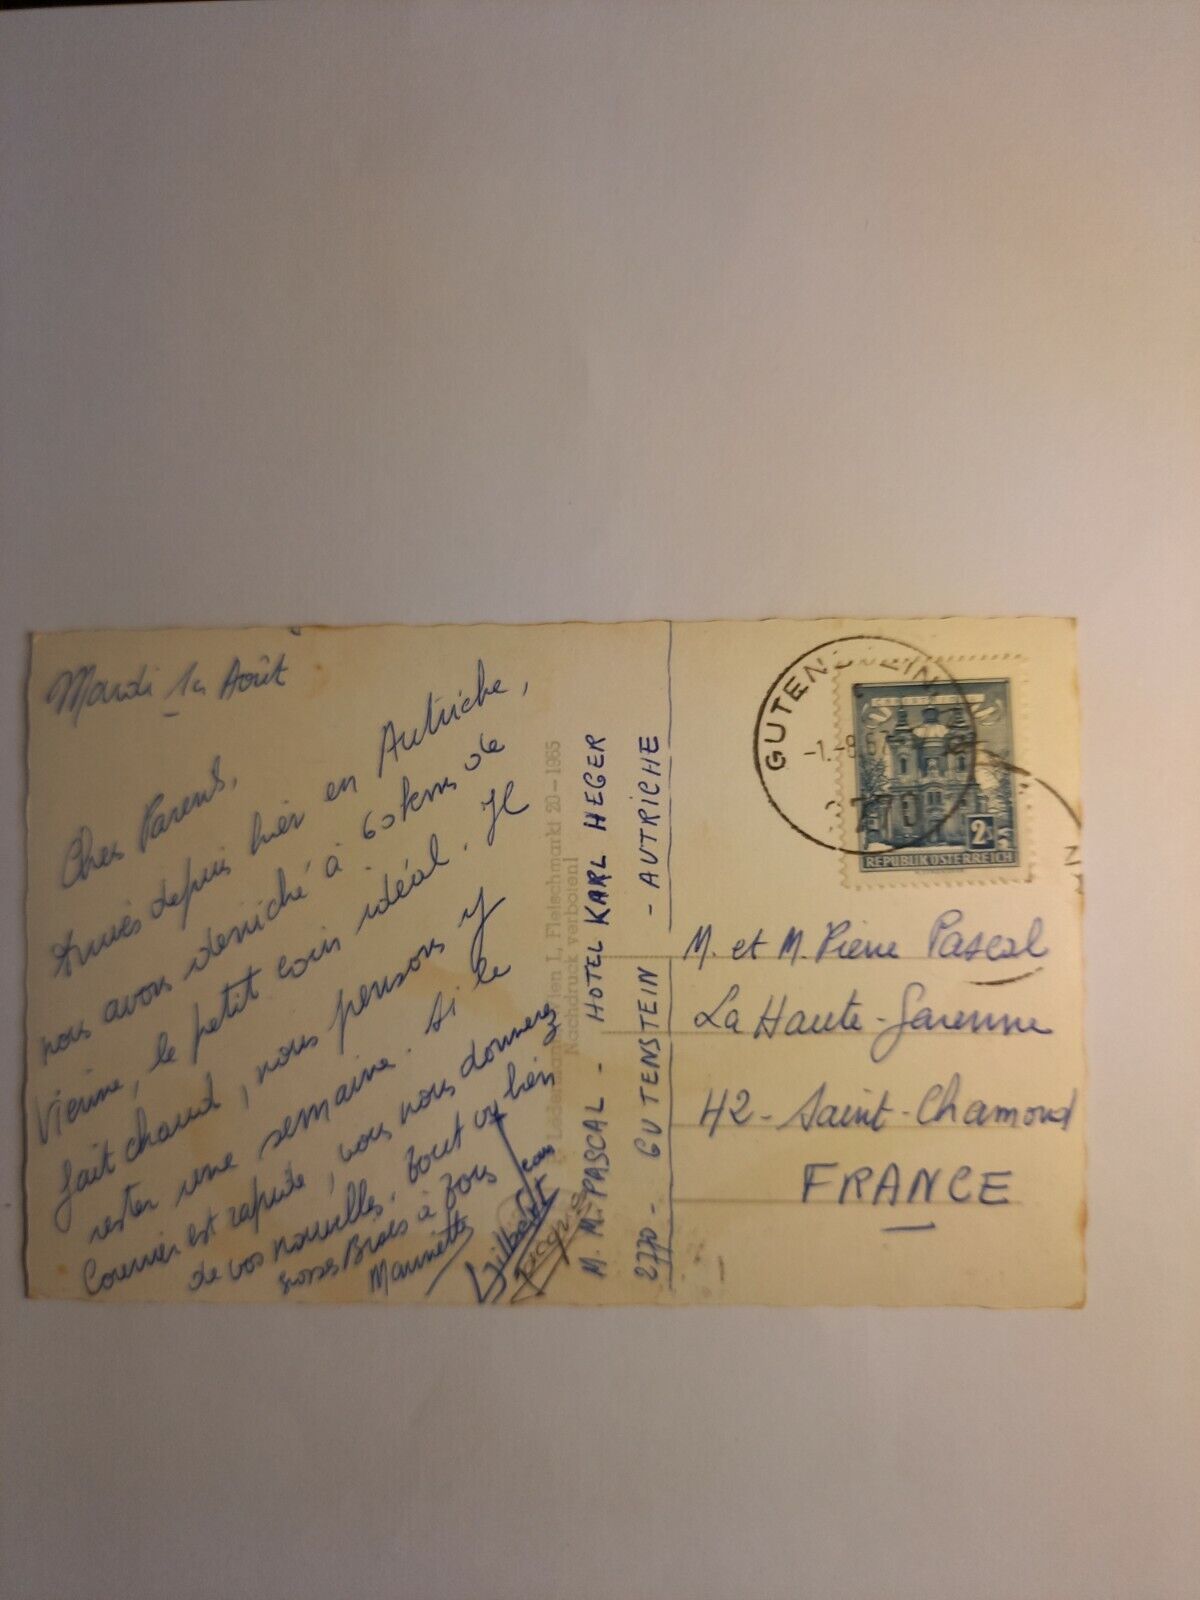 Mardi 1er Août
Chers Parents,
Arrivés depuis hier en Autriche,
nous avons deniché à 60 kms de
Vienne, le petit coin idéal. Il
fait chaud, nous pensons y
rester une semaine. Si le
Courrier est rapide, vous nous donnerez
de vos nouvelles. Tout va bien
grosses Bises à Tous
Marinette
Gilbert
M. M. PASCAL - HOTEL KARL HEGER
2770 - GUTENSTEIN - AUTRICHE
Wien I., Fleischmarkt 20 - 1965
Nachdruck verboten!
GUTENSTEIN
-1.-8.67
2770
2
REPUBLIK ÖSTERREICH
M. et M. Pierre Pascal
La Haute-Garenne
42 - Saint-Chamond
FRANCE